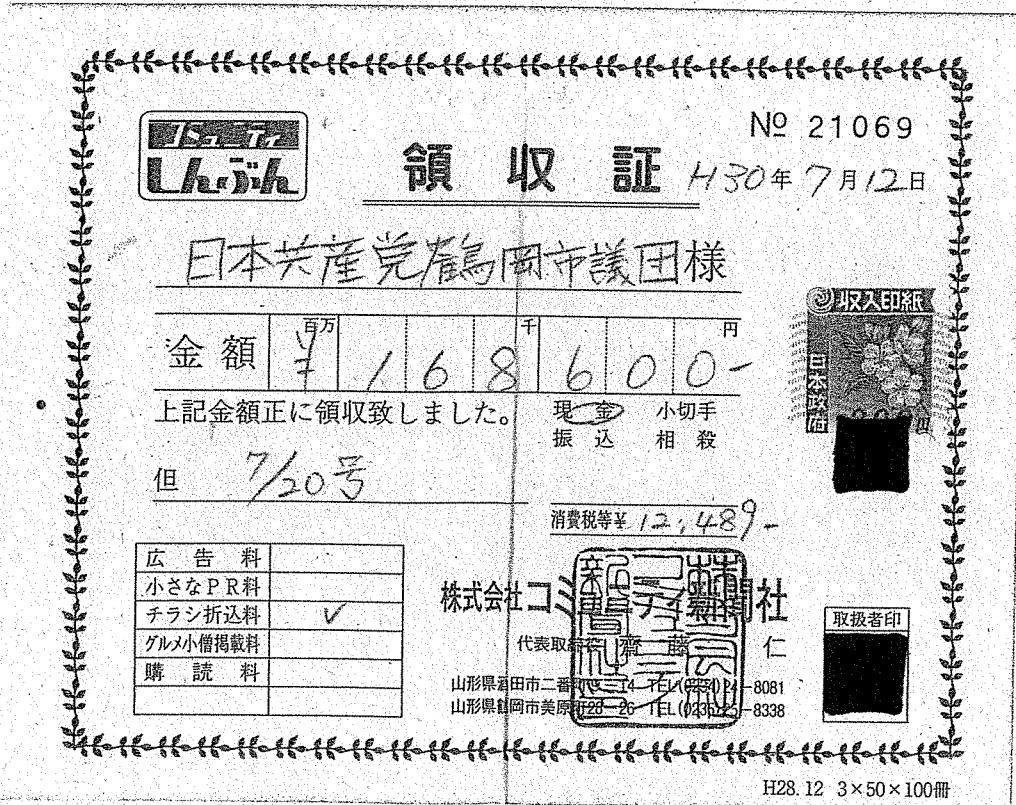 コミュニティ
しんぶん
№ 21069
領収証
H30年7月12日
日本共産党鶴岡市議団様
百万 千 円
金額 ¥168600-
上記金額正に領収致しました。
現金 小切手
振込 相殺
但 7/20号
消費税等¥12,489-
収入印紙
日本政府
広告料
小さなPR料
チラシ折込料 ✓
グルメ小僧掲載料
購読料
株式会社コミュニティ新聞社
代表取締役 齋藤 仁
山形県酒田市二番町 14 TEL(0234)24-8081
山形県鶴岡市美原町28-26 TEL(0235)25-8338
取扱者印
H28.12 3×50×100冊